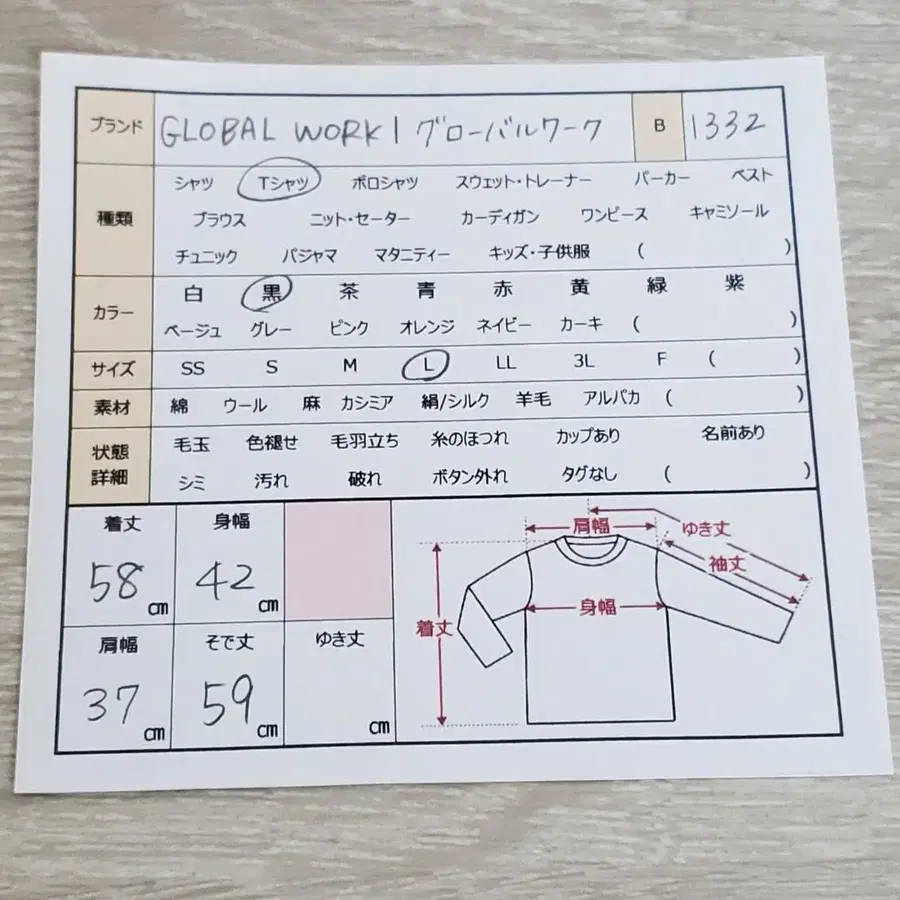 ブランド GLOBAL WORK | グローバルワーク B 1332
種類 シャツ Tシャツ ポロシャツ スウェット・トレーナー パーカー ベスト
ブラウス ニット・セーター カーディガン ワンピース キャミソール
チュニック パジャマ マタニティー キッズ・子供服 ( )
カラー 白 黒 茶 青 赤 黄 緑 紫
ベージュ グレー ピンク オレンジ ネイビー カーキ ( )
サイズ SS S M L LL 3L F ( )
素材 綿 ウール 麻 カシミア 絹/シルク 羊毛 アルパカ ( )
状態詳細 毛玉 色褪せ 毛羽立ち 糸のほつれ カップあり 名前あり
シミ 汚れ 破れ ボタン外れ タグなし ( )
着丈 身幅
58 cm 42 cm
肩幅 そで丈 ゆき丈
37 cm 59 cm cm
肩幅 ゆき丈
袖丈
身幅
着丈